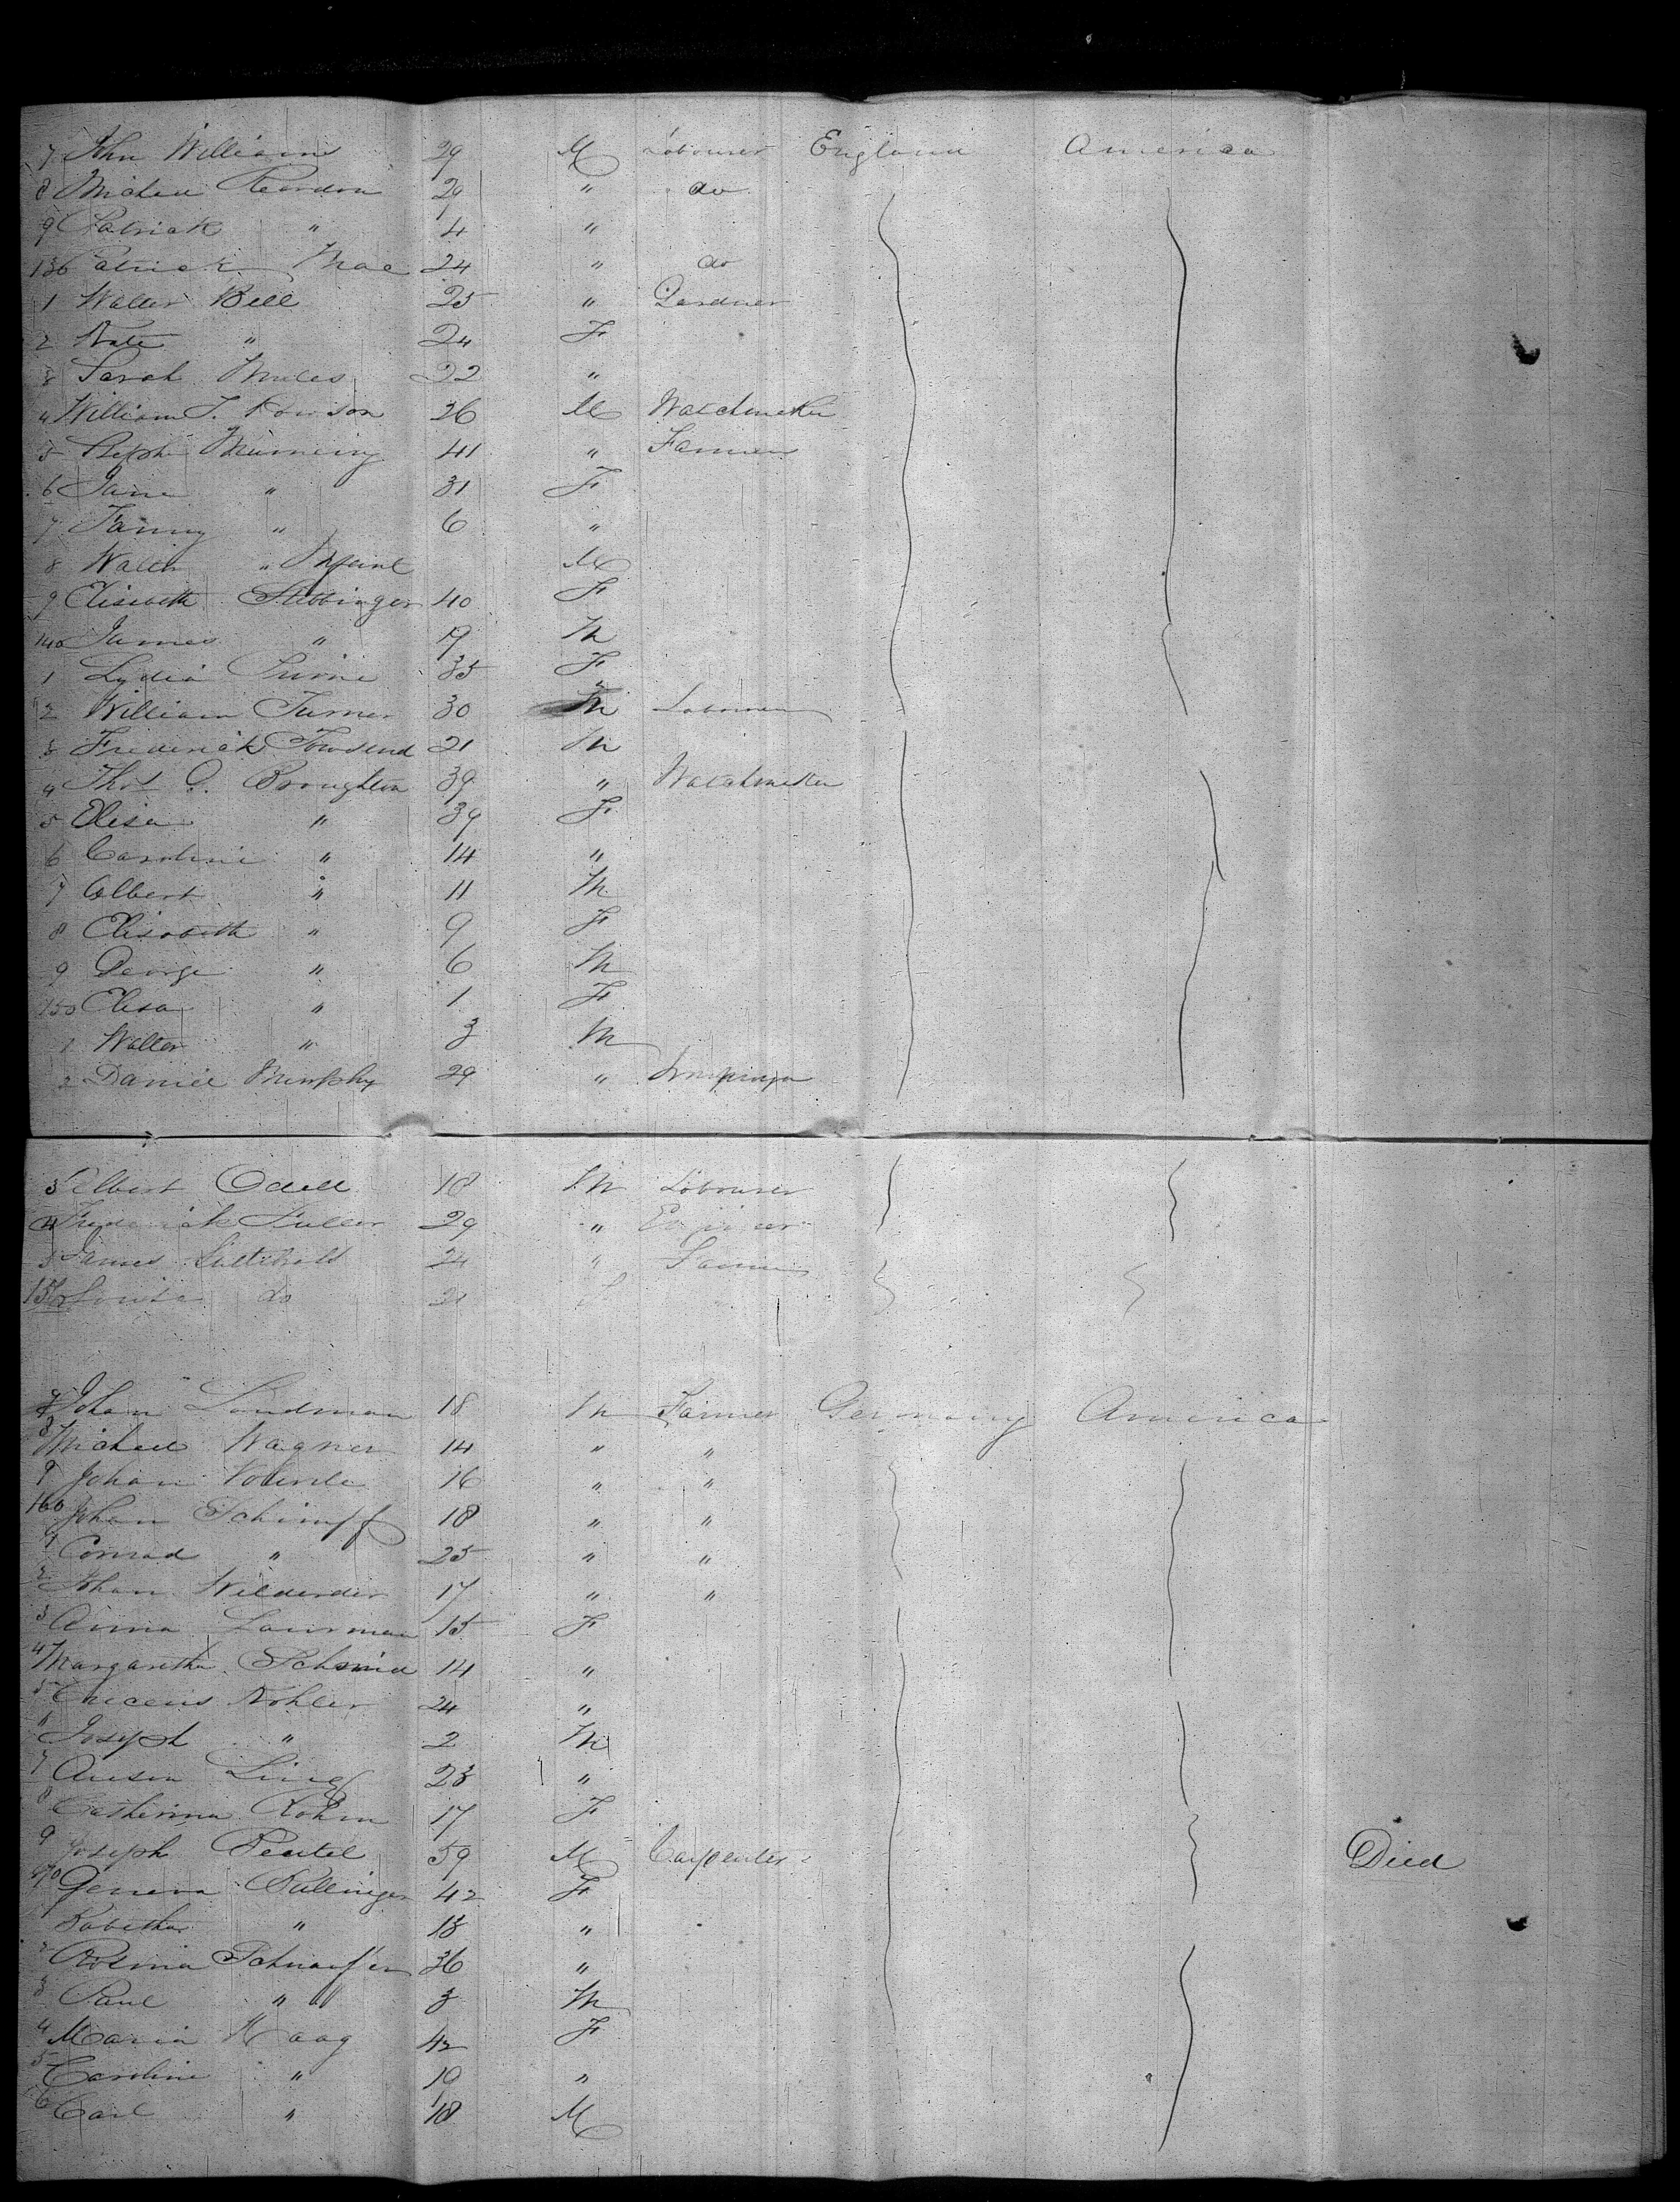 7 John Williams 29 M Labourer England America
8 Michael Reardon 29 " do
9 Patrick " 4 "
130 Patrick Mac 24 " do
1 Walter Bell 25 " Gardner
2 Kate " 24 F
3 Sarah Miles 22 "
4 William T. Rowison 26 M Watchmaker
5 Steph 41 " Farmer
6 Jane " 31 F
7 Fanny " 6 "
8 Walter " Infant M
9 Elisebeth Stebbinger 40 F
140 James " 9 M
1 Lydia 35 F
2 William Turner 30 M Labourer
3 Frederick Towsend 21 M
4 Thos Broughton 39 " Watchmaker
5 Elisa " 39 F
6 Caroline " 14 "
7 Albert " 11 M
8 Elisabeth " 9 F
9 George " 6 M
150 Elisa " 1 F
1 Walter " 3 M
2 Daniel Murphy 29 "
3 Albert Odell 18 M Labourer
4 Frederick Fuller 29 " Engineer
5 James 24 " Farmer
156 Louisa do 21
7 Johan Landman 18 M Farmer Germany America
8 Michael Wagner 14 " "
9 Johan 16 " "
160 Johan Schimpf 18 " "
1 Conrad " 25 " "
2 Johan 17 " "
3 Anna 15 F
4 Margaretha Schmid 14 "
5 Kohler 24 "
6 Joseph " 2 M
7 23 "
8 Catherina Rohm 17 F
9 Joseph 59 M Carpenter Died
170 Geneva 42 F
1 " 13 "
2 Rosina 36 "
3 Paul " 3 M
4 Maria Haag 42 F
5 Caroline " 10 "
6 Carl " 18 M